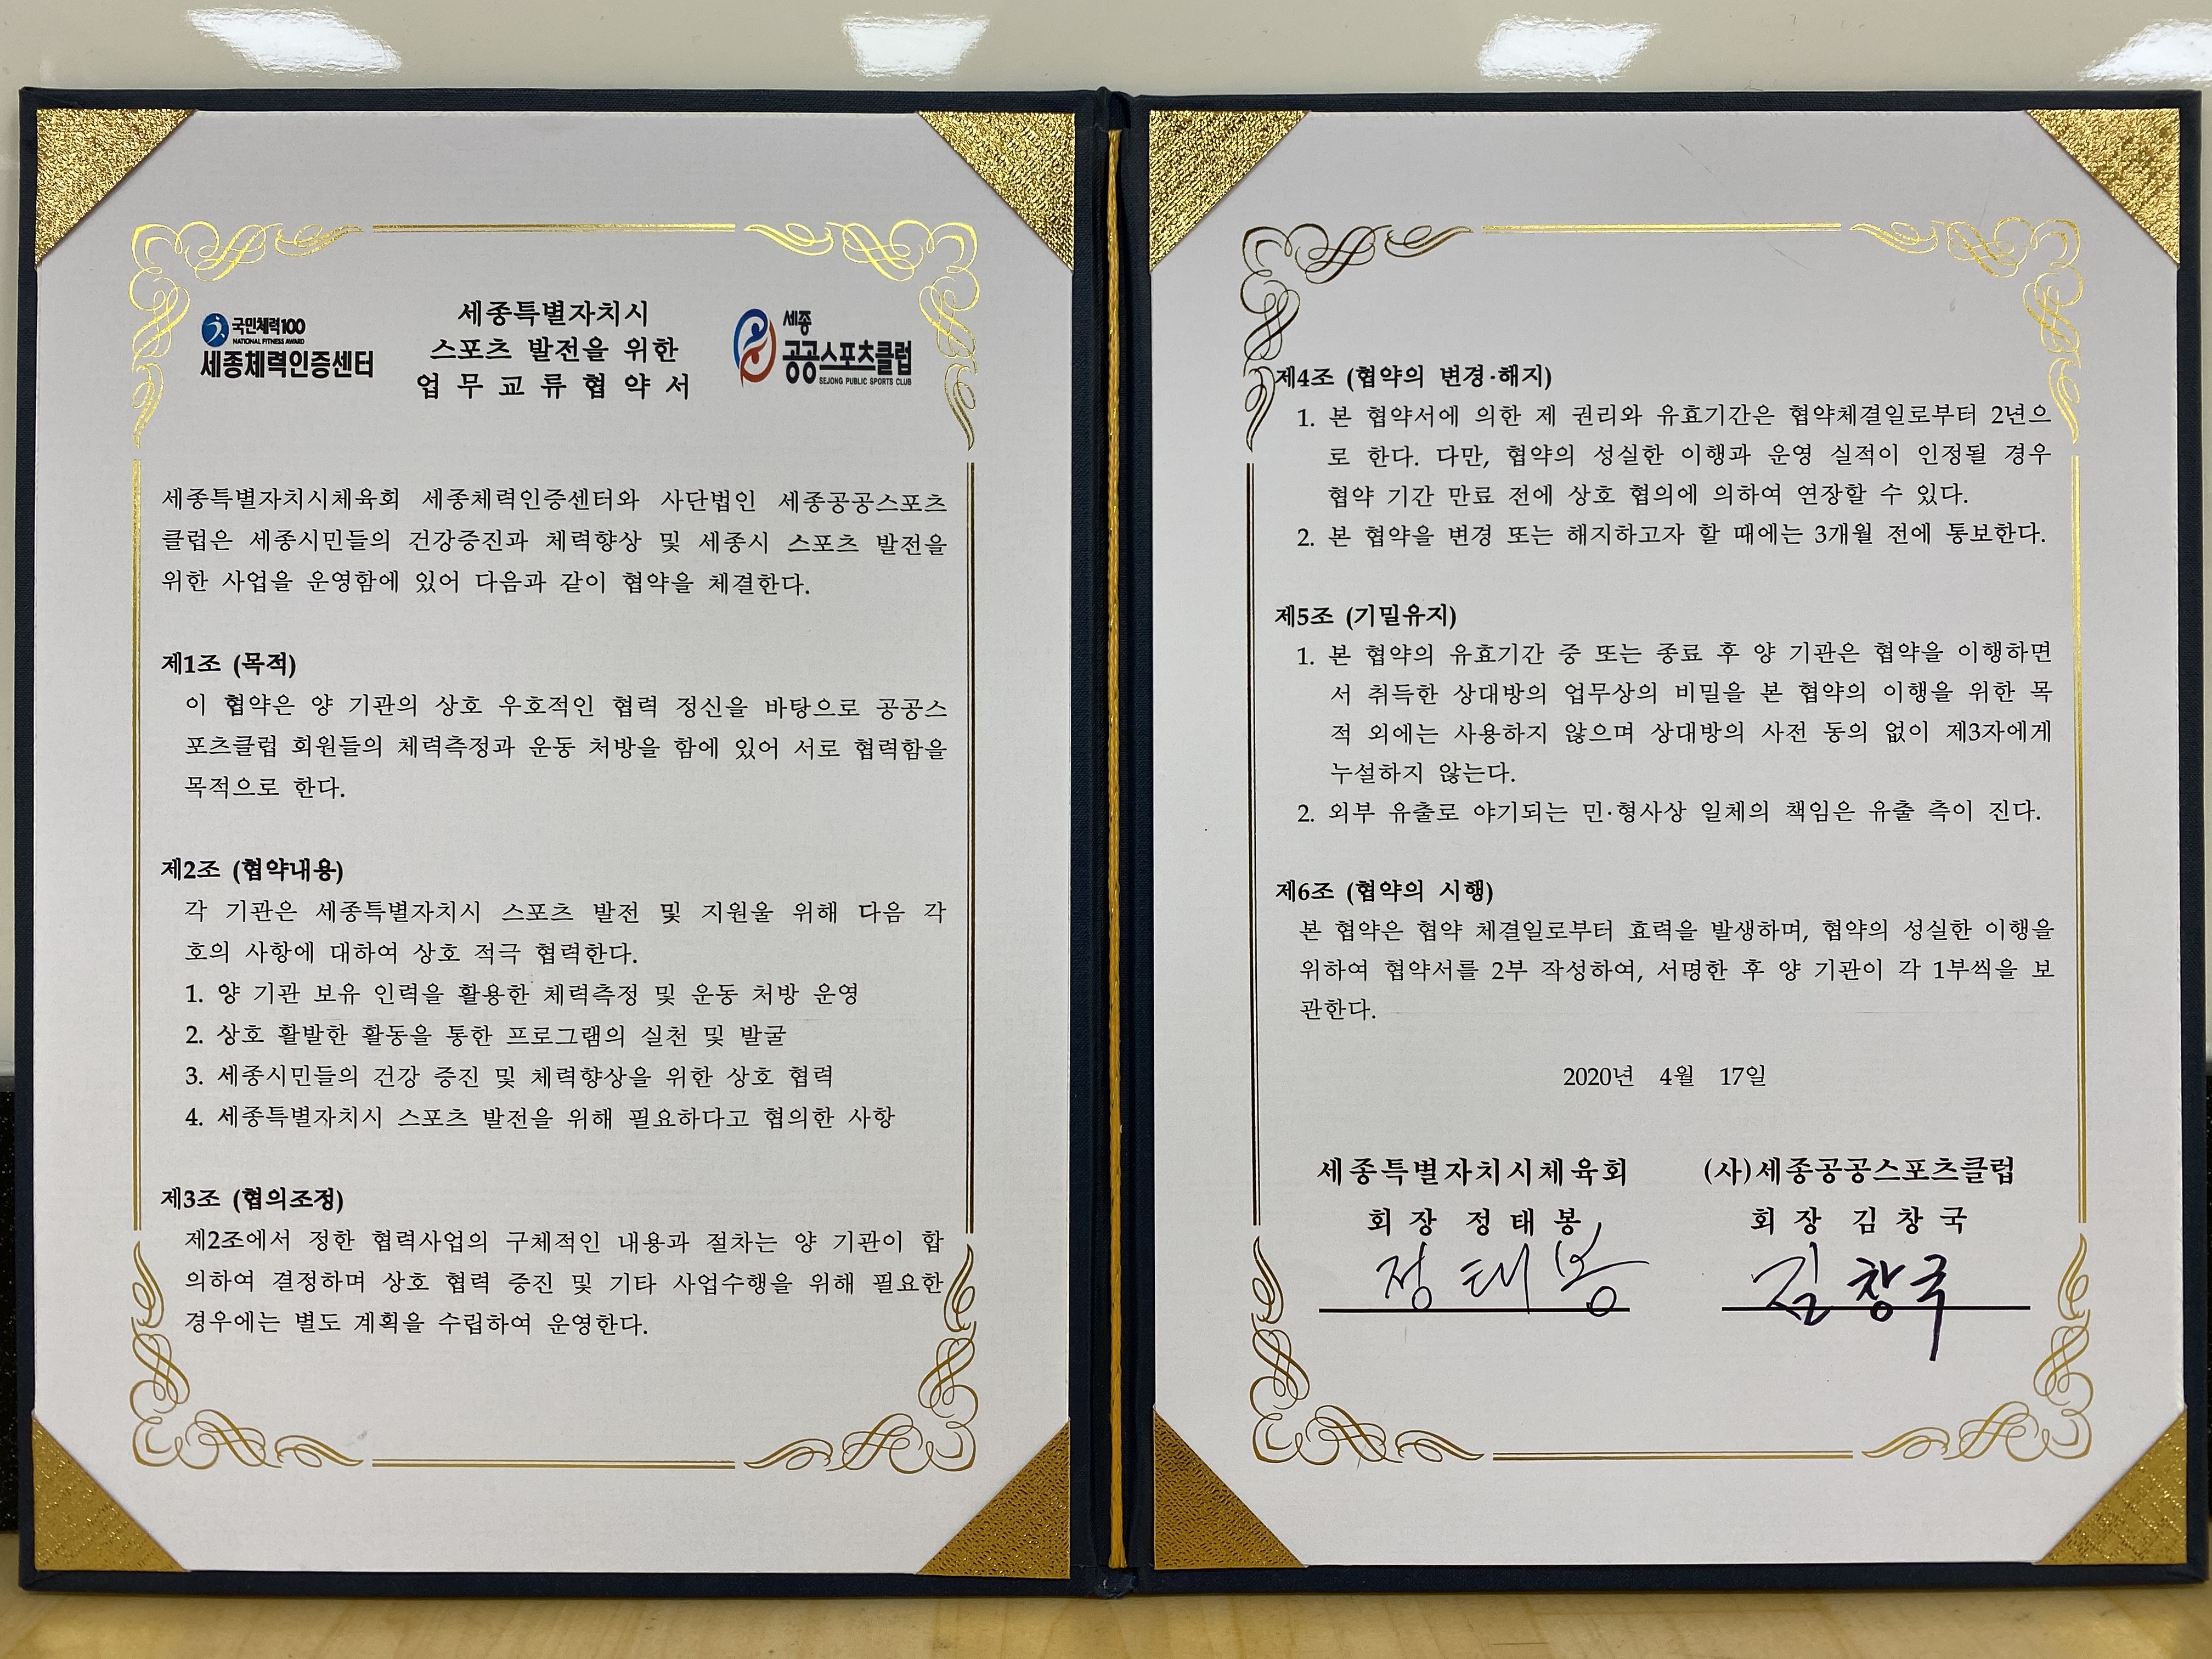 국민체력100
NATIONAL FITNESS AWARD
세종체력인증센터
세종특별자치시
스포츠 발전을 위한
업 무 교 류 협 약 서
세종
공공스포츠클럽
SEJONG PUBLIC SPORTS CLUB
세종특별자치시체육회 세종체력인증센터와 사단법인 세종공공스포츠
클럽은 세종시민들의 건강증진과 체력향상 및 세종시 스포츠 발전을
위한 사업을 운영함에 있어 다음과 같이 협약을 체결한다.
제1조 (목적)
이 협약은 양 기관의 상호 우호적인 협력 정신을 바탕으로 공공스
포츠클럽 회원들의 체력측정과 운동 처방을 함에 있어 서로 협력함을
목적으로 한다.
제2조 (협약내용)
각 기관은 세종특별자치시 스포츠 발전 및 지원울 위해 다음 각
호의 사항에 대하여 상호 적극 협력한다.
1. 양 기관 보유 인력을 활용한 체력측정 및 운동 처방 운영
2. 상호 활발한 활동을 통한 프로그램의 실천 및 발굴
3. 세종시민들의 건강 증진 및 체력향상을 위한 상호 협력
4. 세종특별자치시 스포츠 발전을 위해 필요하다고 협의한 사항
제3조 (협의조정)
제2조에서 정한 협력사업의 구체적인 내용과 절차는 양 기관이 합
의하여 결정하며 상호 협력 증진 및 기타 사업수행을 위해 필요한
경우에는 별도 계획을 수립하여 운영한다.
제4조 (협약의 변경·해지)
1. 본 협약서에 의한 제 권리와 유효기간은 협약체결일로부터 2년으
로 한다. 다만, 협약의 성실한 이행과 운영 실적이 인정될 경우
협약 기간 만료 전에 상호 협의에 의하여 연장할 수 있다.
2. 본 협약을 변경 또는 해지하고자 할 때에는 3개월 전에 통보한다.
제5조 (기밀유지)
1. 본 협약의 유효기간 중 또는 종료 후 양 기관은 협약을 이행하면
서 취득한 상대방의 업무상의 비밀을 본 협약의 이행을 위한 목
적 외에는 사용하지 않으며 상대방의 사전 동의 없이 제3자에게
누설하지 않는다.
2. 외부 유출로 야기되는 민·형사상 일체의 책임은 유출 측이 진다.
제6조 (협약의 시행)
본 협약은 협약 체결일로부터 효력을 발생하며, 협약의 성실한 이행을
위하여 협약서를 2부 작성하여, 서명한 후 양 기관이 각 1부씩을 보
관한다.
2020년 4월 17일
세종특별자치시체육회
회 장 정 태 봉
정 태 봉
(사)세종공공스포츠클럽
회 장 김 창 국
김 창 국